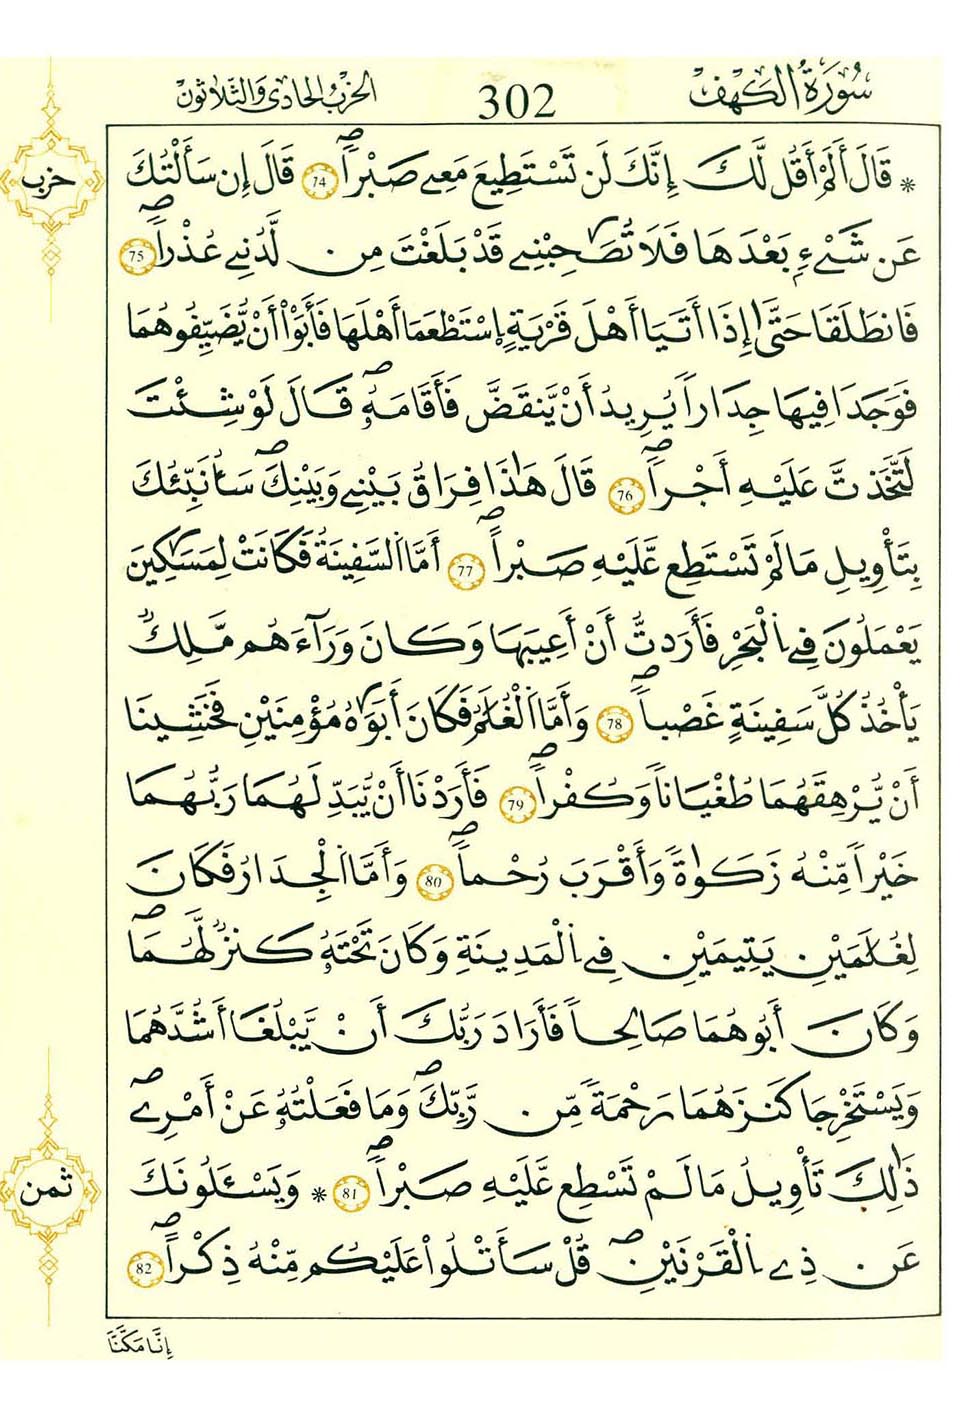 سُورَةُ الكَهْفِ 302 الحِزْبُ الحَادِي وَالثَّلَاثُونَ
حزب
* قَالَ أَلَمْ أَقُل لَّكَ إِنَّكَ لَن تَسْتَطِيعَ مَعِے صَبْراٗۖ 74 قَالَ إِن سَأَلْتُكَ
عَن شَےْءِۢ بَعْدَهَا فَلَا تُصَٰحِبْنِے قَدْ بَلَغْتَ مِن لَّدُنِے عُذْراٗۖ 75
فَانطَلَقَا حَتَّىٰٓ إِذَا أَتَيَا أَهْلَ قَرْيَةٍ اِسْتَطْعَمَا أَهْلَهَا فَأَبَوْاْ أَنْ يُّضَيِّفُوهُمَا
فَوَجَدَا فِيهَا جِدَاراٗ يُرِيدُ أَنْ يَّنقَضَّ فَأَقَامَهُۥۖ قَالَ لَوْ شِئْتَ
لَتَّخَذتَّ عَلَيْهِ أَجْراٗۖ 76 قَالَ هَٰذَا فِرَاقُ بَيْنِے وَبَيْنِكَۖ سَأُنَبِّئُكَ
بِتَأْوِيلِ مَا لَمْ تَسْتَطِع عَّلَيْهِ صَبْراًۖ 77 أَمَّا اَ۬لسَّفِينَةُ فَكَانَتْ لِمَسَٰكِينَ
يَعْمَلُونَ فِے اِ۬لْبَحْرِ فَأَرَدتُّ أَنْ أَعِيبَهَا وَكَانَ وَرَآءَهُم مَّلِكٞ
يَأْخُذُ كُلَّ سَفِينَةٍ غَصْباٗۖ 78 وَأَمَّا اَ۬لْغُلَٰمُ فَكَانَ أَبَوَٰهُ مُؤْمِنَيْنِ فَخَشِينَا
أَنْ يُّرْهِقَهُمَا طُغْيَاناٗ وَكُفْراٗۖ 79 فَأَرَدْنَا أَنْ يُّبَدِّلَهُمَا رَبُّهُمَا
خَيْراٗ مِّنْهُ زَكَوٰةٗ وَأَقْرَبَ رُحْماٗۖ 80 وَأَمَّا اَ۬لْجِدَارُ فَكَانَ
لِغُلَٰمَيْنِ يَتِيمَيْنِ فِے اِ۬لْمَدِينَةِ وَكَانَ تَحْتَهُۥ كَنزٞ لَّهُمَاۖ
وَكَانَ أَبُوهُمَا صَالِحاٗ فَأَرَادَ رَبُّكَ أَنْ يَّبْلُغَا أَشُدَّهُمَا
وَيَسْتَخْرِجَا كَنزَهُمَا رَحْمَةٗ مِّن رَّبِّكَۖ وَمَا فَعَلْتُهُۥ عَنْ أَمْرِےۖ
ذَٰلِكَ تَأْوِيلُ مَا لَمْ تَسْطِع عَّلَيْهِ صَبْراٗۖ 81 * وَيَسْـَٔلُونَكَ
ثمن
عَن ذِے اِ۬لْقَرْنَيْنِۖ قُلْ سَأَتْلُواْ عَلَيْكُم مِّنْهُ ذِكْراًۖ 82
إِنَّا مَكَّنَّا